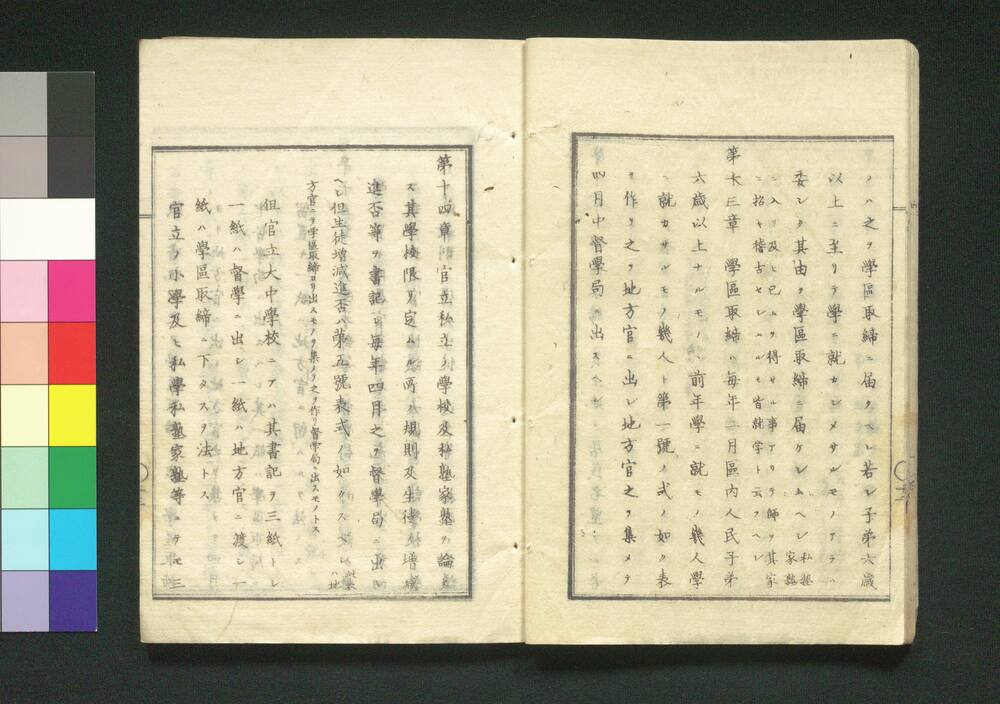 ノハ之ヲ學區取締ニ届クヘシ若シ子弟六歳
以上ニ至リテ學ニ就カシメサルモノアラハ
委シク其由ヲ學區取締ニ届ケシムヘシ私塾家塾
ニ入リ及ヒ已ムヲ得サル事アリテ師ヲ其家
ニ招キ稽古セシムルモ皆就学ト云フヘシ
第十三章 學區取締ハ毎年二月區内人民子弟
六歳以上ナルモノハ前年學ニ就モノ幾人學
ニ就カサルモノ幾人ト第一號ノ式ノ如ク表
ヲ作リ之ヲ地方官ニ出シ地方官之ヲ集メテ
四月中督學局ニ出スヘシ
第十四章 官立私立ノ學校及私塾家塾ヲ論セ
ス其學校限リ定ムル所ノ規則及生徒ノ増減
進否等ヲ書記シ毎年四月之ヲ督學局ニ出ス
ヘシ但生徒増減進否ハ第五號表式ノ如クスヘシ此表ハ地
方官ニテ学區取締ヨリ出スモノヲ集メ之ヲ作リ督学局ニ出スモノトス
但官立大中學校ニアハ其書記ヲ三紙トレ
一紙ハ督學ニ出シ一紙ハ地方官ニ渡シ一
紙ハ學區取締ニ下タスヲ法トス
官立ノ小學及ヒ私學私塾家塾等ハ